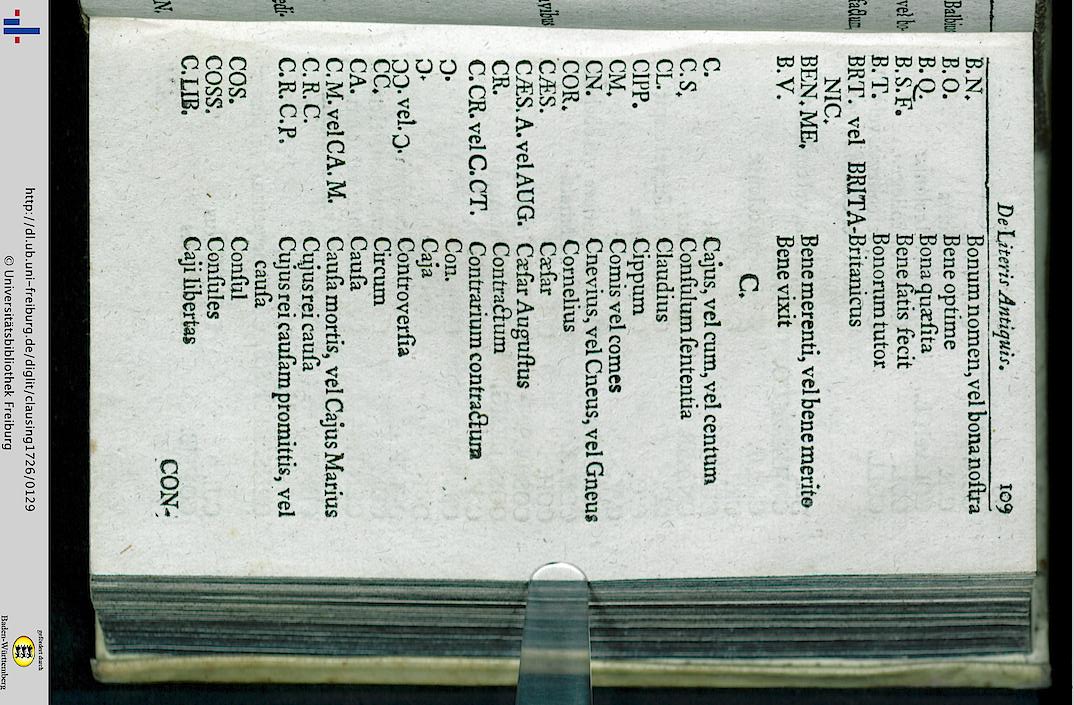 De Literis Antiquis. 109
B. N. Bonum nomen, vel bona noſtra
B. O. Bene optime
B. Q. Bona quæſita
B. S. F. Bene ſatis fecit
B. T. Bonorum tutor
BRT. vel BRITA- Britanicus
NIC.
BEN. ME. Bene merenti, vel bene merito
B. V. Bene vixit
C.
C. Cajus, vel cum, vel centum
C. S. Conſulum ſententia
CL. Claudius
CIPP. Cippum
CM. Comis vel comes
CN. Cnevius, vel Cneus, vel Gneus
COR. Cornelius
CÆS. Cæſar
CÆS. A. vel AUG. Cæſar Auguſtus
CR. Contractum
C. CR. vel C. CT. Contrarium contractum
Ɔ. Con.
Ɔ. Caja
ƆƆ. vel. Ɔ. Controverſia
CC. Circum
CA. Cauſa
C. M. vel CA. M. Cauſa mortis, vel Cajus Marius
C. R. C. Cujus rei cauſa
C. R. C. P. Cujus rei cauſam promittis, vel
cauſa
COS. Conſul
COSS. Conſules
C. LIB. Caji libertas
CON-
Balbius
vel bo-
factum
avibus
N.
http://dl.ub.uni-freiburg.de/diglit/clausing1726/0129
© Universitätsbibliothek Freiburg
gefördert durch
Baden-Württemberg